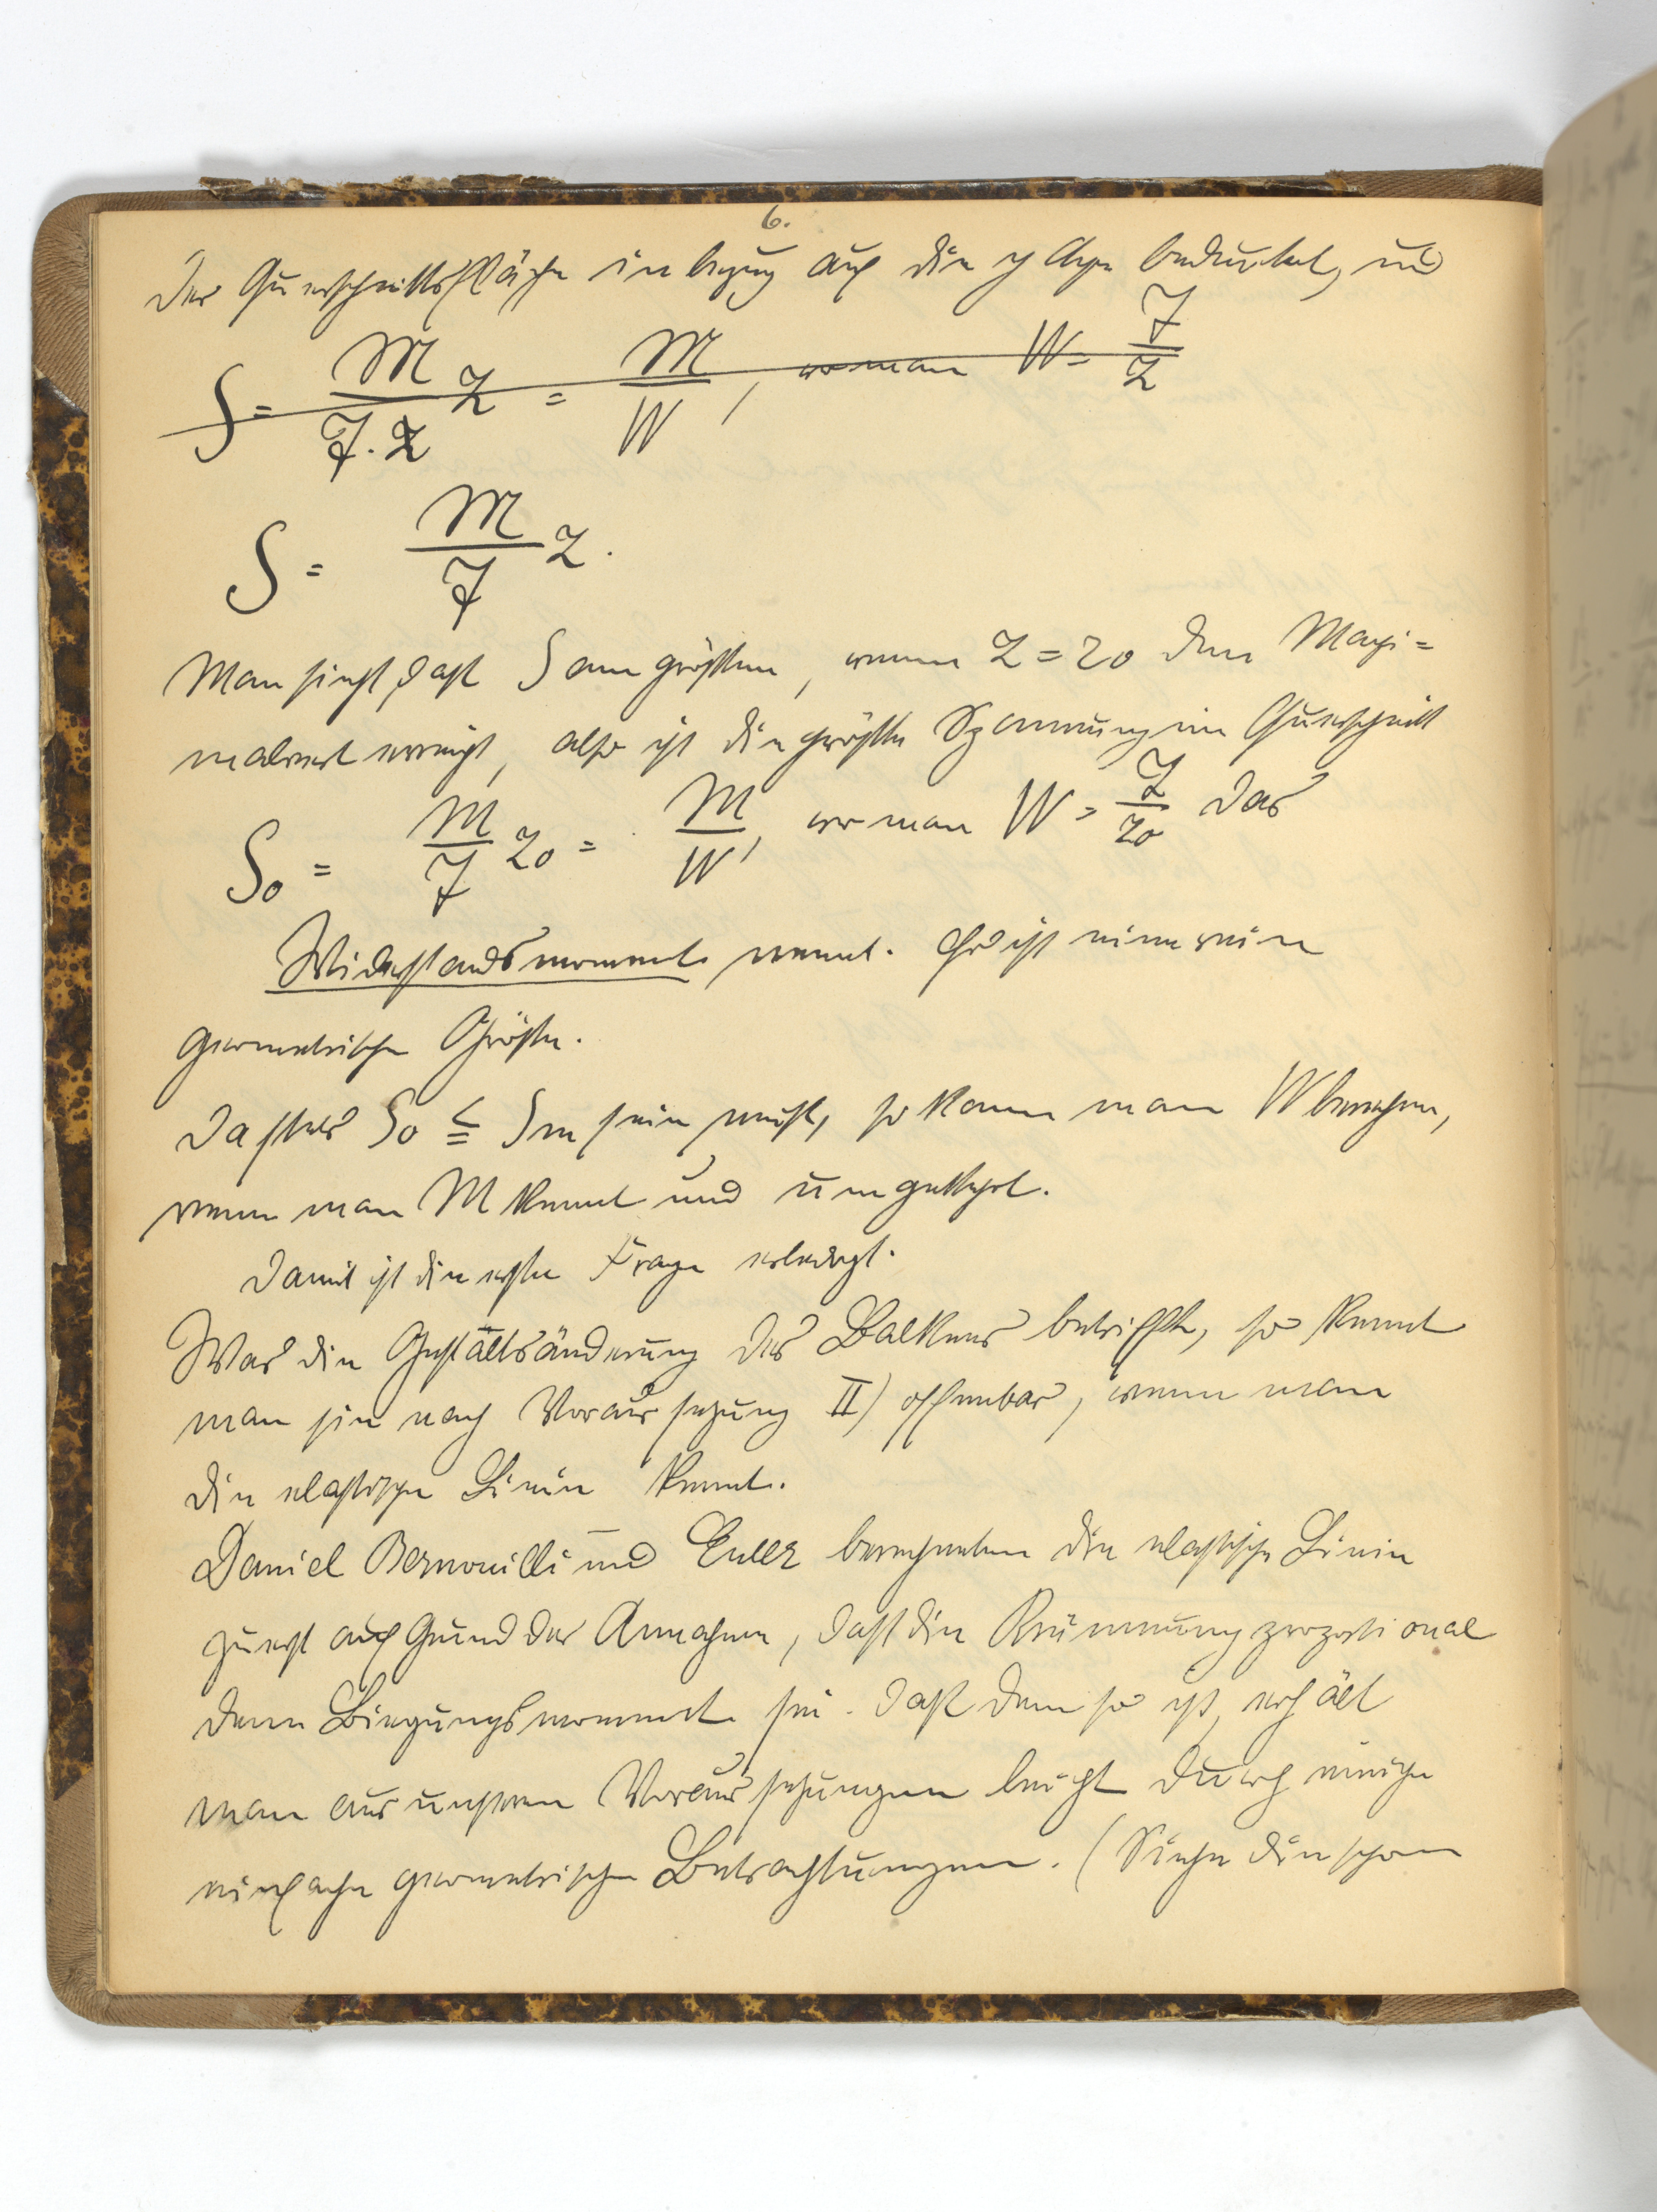 6.
der Querschnittsfläche in bezug auf die y Axe bedeutet, und
S = M/J·Z Z = M/W, wo man W = J/Z
S = M/J Z.
Man sieht, daß S am größten, wenn Z = Z0 den Maxi=
malwert erreicht, also ist die größte Spannung im Querschnitt
S0 = M/J Z0 = M/W, wo man W = J/Z0 das
Widerstandsmoment nennt. Es ist eine rein
geometrische Größe.
Da stets S0 ≦ Sm sein muß, so kann man W berechnen,
wenn man M kennt und umgekehrt.
Damit ist die erste Frage erledigt.
Was die Gestaltsänderung des Balkens betrifft, so kennt
man sie nach Voraussetzung II) offenbar, wenn man
die elastische Linie kennt.
Daniel Bernouilli und Euler berechneten die elastische Linie
zuerst auf Grund der Annahme, daß die Krümmung proportional
dem Biegungsmoment sei. Daß dem so ist, erhält
man aus unseren Voraussetzungen leicht durch einige
einfache geometrische Betrachtungen. (Siehe die schon